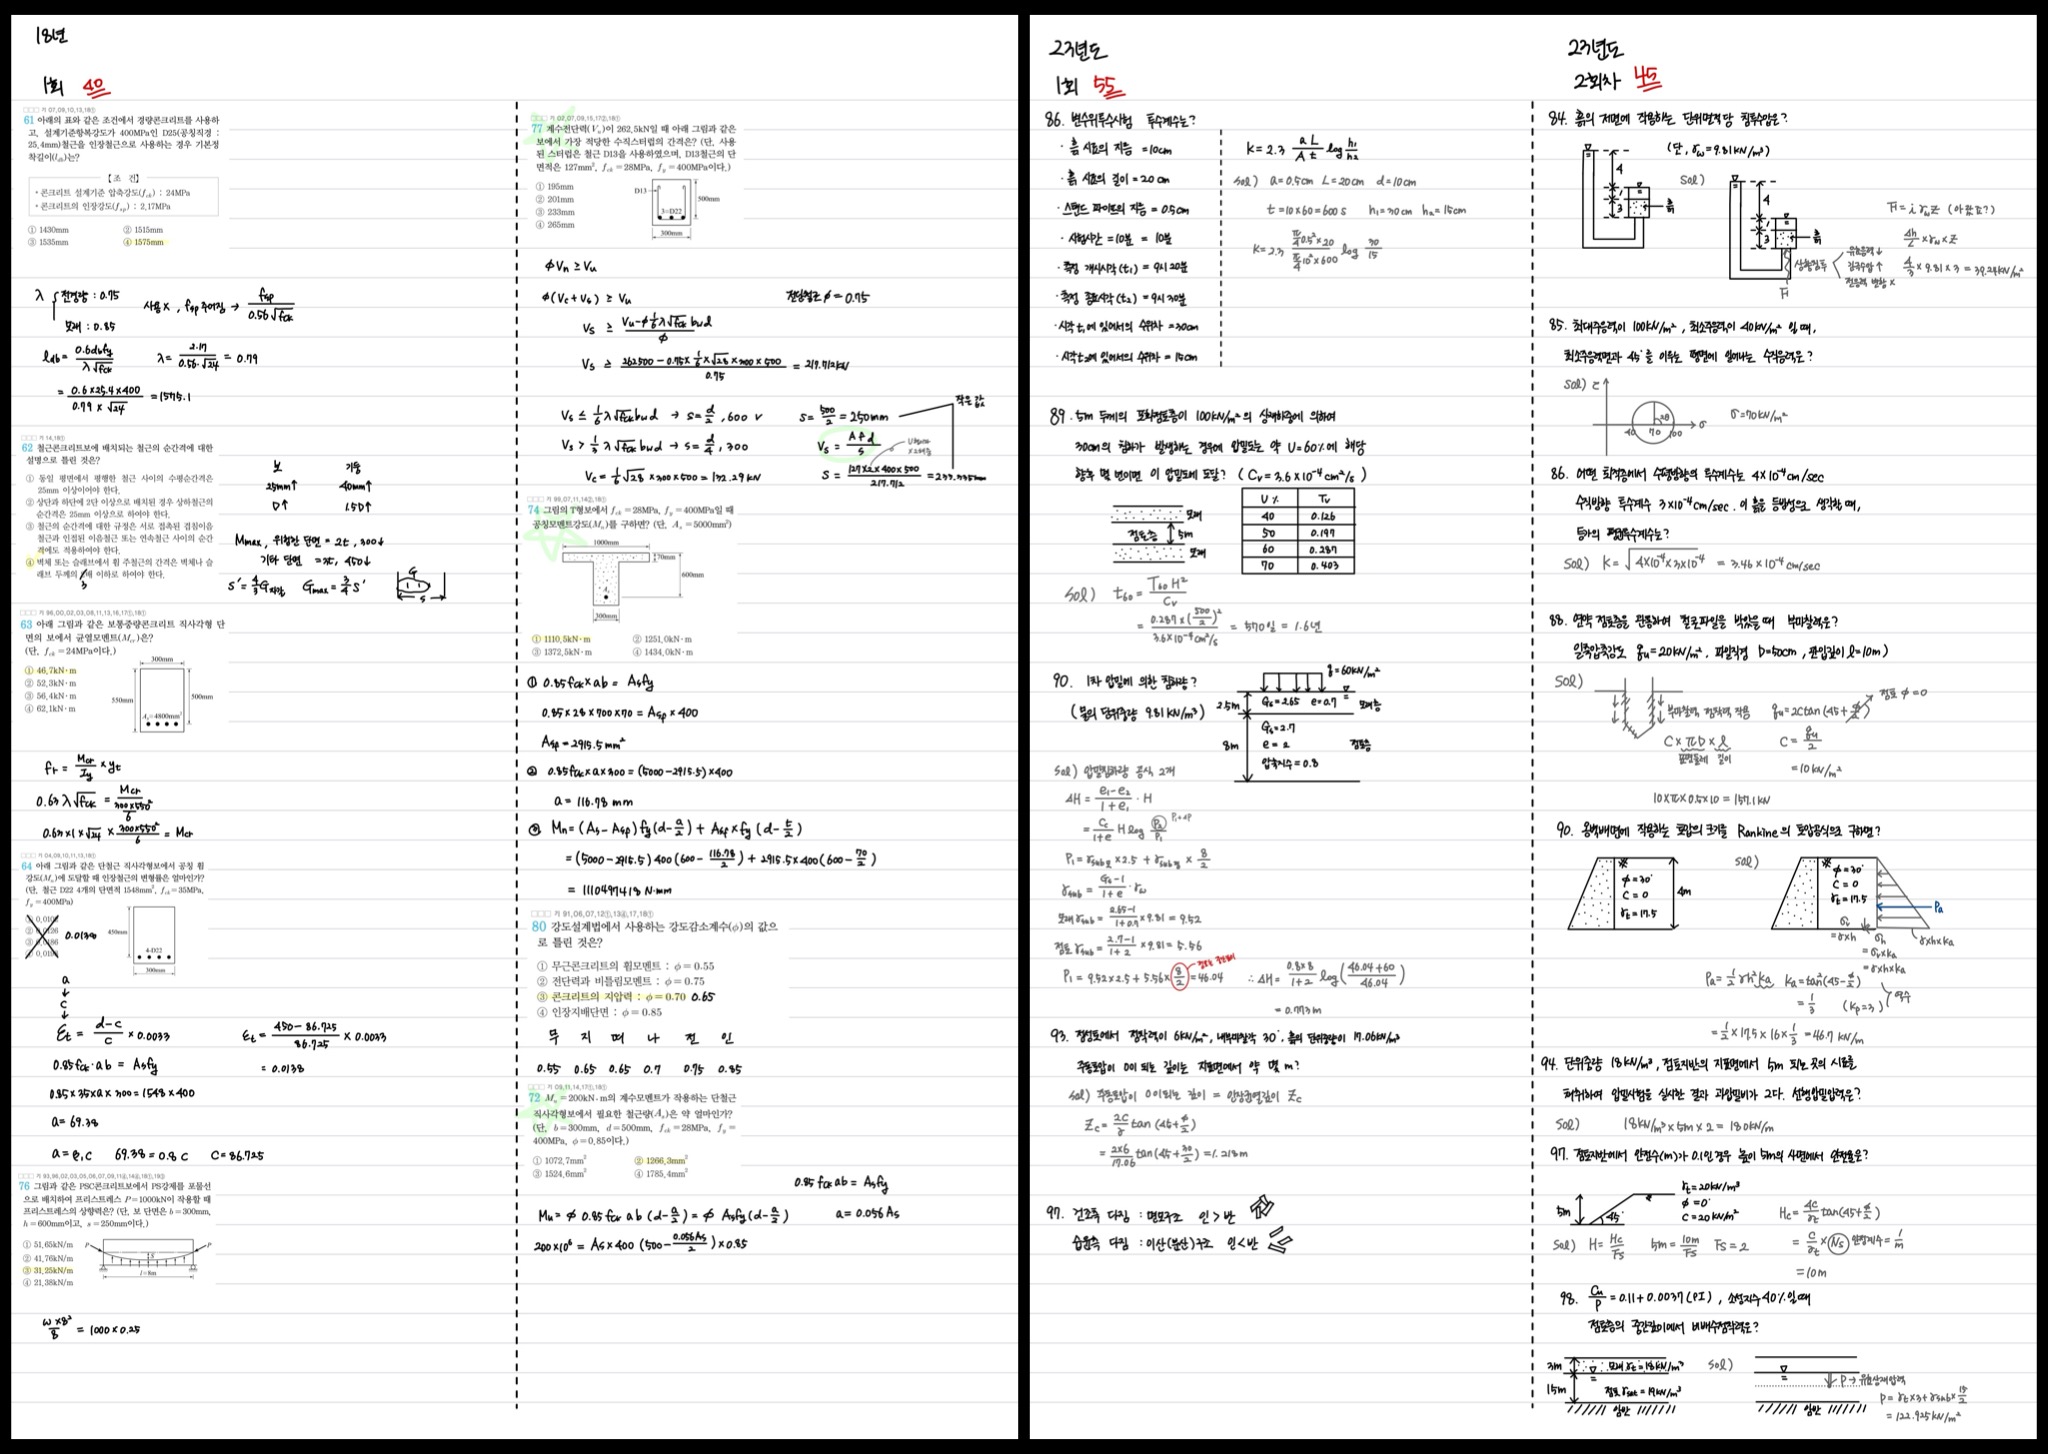 18년
1회 40
기 07,09,10,13,18①
61 아래의 표와 같은 조건에서 경량콘크리트를 사용하
고, 설계기준항복강도가 400MPa인 D25(공칭직경 :
25.4mm)철근을 인장철근으로 사용하는 경우 기본정
착길이(l_db)는?
【조 건】
• 콘크리트 설계기준 압축강도(f_ck) : 24MPa
• 콘크리트의 인장강도(f_sp) : 2.17MPa
① 1430mm ② 1515mm
③ 1535mm ④ 1575mm
λ 전경량 : 0.75
모래 : 0.85
사용 X, fsp 주어짐 → fsp / 0.56√fck
ldb = 0.6dbfy / λ√fck λ = 2.17 / 0.56·√24 = 0.79
= 0.6×25.4×400 / 0.79×√24 = 1575.1
기 14,18①
62 철근콘크리트보에 배치되는 철근의 순간격에 대한
설명으로 틀린 것은?
① 동일 평면에서 평행한 철근 사이의 수평순간격은
25mm 이상이어야 한다.
② 상단과 하단에 2단 이상으로 배치된 경우 상하철근의
순간격은 25mm 이상으로 하여야 한다.
③ 철근의 순간격에 대한 규정은 서로 접촉된 겹침이음
철근과 인접된 이음철근 또는 연속철근 사이의 순간
격에도 적용하여야 한다.
④ 벽체 또는 슬래브에서 휨 주철근의 간격은 벽체나 슬
래브 두께의 배 이하로 하여야 한다.
3
보 기둥
25mm↑ 40mm↑
D↑ 1.5D↑
Mmax, 위험한 단면 = 2t, 300↓
기타 단면 = 3t, 450↓
S' = 4/3 G Gmax = 3/4 S'
G
S
63 아래 그림과 같은 보통중량콘크리트 직사각형 단
면의 보에서 균열모멘트(M_cr)은?
(단, f_ck = 24MPa이다.)
① 46.7kN·m
② 52.3kN·m
③ 56.4kN·m
④ 62.1kN·m
300mm
550mm
500mm
A_s=4800mm²
fr = Mcr / Iy × yt
0.63 λ√fck = Mcr / (300×550² / 6)
0.63×1×√24 × 300×550² / 6 = Mcr
기 04,09,10,11,13,18①
64 아래 그림과 같은 단철근 직사각형보에서 공칭 휨
강도(M_n)에 도달할 때 인장철근의 변형률은 얼마인가?
(단, 철근 D22 4개의 단면적 1548mm², f_ck=35MPa,
f_y=400MPa)
0.0138
450mm
4-D22
300mm
a
↓
c
↓
εt = d-c / c × 0.0033 εt = 450-86.725 / 86.725 × 0.0033
0.85fck·ab = Asfy = 0.0138
0.85×35×a×300 = 1548×400
a = 69.38
a = β1c 69.38 = 0.8c C = 86.725
76 그림과 같은 PSC콘크리트보에서 PS강재를 포물선
으로 배치하여 프리스트레스 P=1000kN이 작용할 때
프리스트레스의 상향력은? (단, 보 단면은 b=300mm,
h=600mm이고, s=250mm이다.)
① 51.65kN/m
② 41.76kN/m
③ 31.25kN/m
④ 21.38kN/m
P P
l=8m
w×8² / 8 = 1000×0.25
기 02,07,09,15,17②,18①
77 계수전단력(V_u)이 262.5kN일 때 아래 그림과 같은
보에서 가장 적당한 수직스터럽의 간격은? (단, 사용
된 스터럽은 철근 D13을 사용하였으며, D13철근의 단
면적은 127mm², f_ck=28MPa, f_y=400MPa이다.)
① 195mm
② 201mm
③ 233mm
④ 265mm
D13
3=D22
500mm
300mm
ΦVn ≥ Vu
Φ(Vc+Vs) ≥ Vu 전단철근 Φ=0.75
Vs ≥ Vu-Φ1/6λ√fck bwd / Φ
Vs ≥ 262500-0.75×1/6×√28×300×500 / 0.75 = 217.712kN
Vs ≤ 1/3 λ√fck bwd → s = d/2, 600 v S = 500/2 = 250mm 작은 값
Vs > 1/3 λ√fck bwd → s = d/4, 300 Vs = Afd / s
Vc = 1/6√28×300×500 = 132.29kN S = 127×2×400×500 / 217.712 = 233.335mm
기 99,07,11,14②,18①
74 그림의 T형보에서 f_ck=28MPa, f_y=400MPa일 때
공칭모멘트강도(M_n)를 구하면? (단, A_s=5000mm²)
1000mm
70mm
600mm
A_s
300mm
① 1110.5kN·m ② 1251.0kN·m
③ 1372.5kN·m ④ 1434.0kN·m
① 0.85fck×ab = Asfy
0.85×28×700×70 = Asp×400
Asp = 2915.5mm²
② 0.85fck×a×300 = (5000-2915.5)×400
a = 116.78 mm
③ Mn = (As-Asp)fy(d-a/2) + Asp×fy(d-t/2)
= (5000-2915.5)400(600-116.78/2) + 2915.5×400(600-70/2)
= 1110497418 N·mm
기 91,06,07,12①,13④,17,18①
80 강도설계법에서 사용하는 강도감소계수(φ)의 값으
로 틀린 것은?
① 무근콘크리트의 휨모멘트 : φ=0.55
② 전단력과 비틀림모멘트 : φ=0.75
③ 콘크리트의 지압력 : φ=0.70 0.65
④ 인장지배단면 : φ=0.85
무 지 띠 나 전 인
0.55 0.65 0.65 0.7 0.75 0.85
기 09,11,14,17①,18①
72 M_u=200kN·m의 계수모멘트가 작용하는 단철근
직사각형보에서 필요한 철근량(A_s)은 약 얼마인가?
(단, b=300mm, d=500mm, f_ck=28MPa, f_y=
400MPa, φ=0.85이다.)
① 1072.7mm² ② 1266.3mm²
③ 1524.6mm² ④ 1785.4mm²
0.85fck ab = Asfy
Mu = Φ 0.85fck ab (d-a/2) = Φ Asfy(d-a/2) a = 0.056As
200×10⁶ = As×400 (500-0.056As/2)×0.85
23년도
1회 55
86. 변수위투수시험 투수계수는?
· 흙 시료의 지름 = 10cm
· 흙 시료의 길이 = 20cm
· 스탠드 파이프의 지름 = 0.5cm
· 시험시간 = 10분 = 10분
· 측정 개시시각(t1) = 9시 20분
· 측정 종료시각(t2) = 9시 30분
· 시각 t1에 있어서의 수위차 = 30cm
· 시각 t2에 있어서의 수위차 = 15cm
K = 2.3 aL / At log h1/h2
Sol) a=0.5cm L=20cm d=10cm
t=10×60=600s h1=30cm h2=15cm
K = 2.3 π/4 0.5²×20 / π/4 10²×600 log 30/15
89. 5m 두께의 포화점토층이 100kN/m²의 상재하중에 의하여
30cm의 침하가 발생하는 경우에 압밀도는 약 U=60%에 해당
향후 몇 년이면 이 압밀도에 도달? (Cv=3.6×10⁻⁴cm²/s)
모래
점토층 5m
모래
U% Tv
40 0.126
50 0.197
60 0.287
70 0.403
Sol) t60 = T60H² / Cv
= 0.287×(500/2)² / 3.6×10⁻⁴cm²/s = 570일 = 1.6년
90. 1차 압밀에 의한 침하량?
(물의 단위중량 9.81kN/m³)
q=60kN/m²
2.5m Gs=2.65 e=0.7 모래층
8m
Gs=2.7
e=2 점토층
압축지수=0.8
Sol) 압밀침하량 공식 2개
ΔH = e1-e2 / 1+e1 · H
= Cc / 1+e H log P2/P1 P1+ΔP
P1 = γsub모×2.5 + γsub점×8/2
γsub = Gs-1 / 1+e · γw
모래 γsub = 2.65-1 / 1+0.7 × 9.81 = 9.52
점토 γsub = 2.7-1 / 1+2 × 9.81 = 5.56
P1 = 9.52×2.5+5.56×8/2 = 46.04 ∴ ΔH = 0.8×8 / 1+2 log(46.04+60 / 46.04)
= 0.773m
93. 점성토에서 점착력이 6kN/m², 내부마찰각 30°, 흙의 단위중량이 17.06kN/m³
주동토압이 0이 되는 깊이는 지표면에서 약 몇 m?
Sol) 주동토압이 0이되는 깊이 = 인장균열깊이 Zc
Zc = 2C/γ tan(45+Φ/2)
= 2×6 / 17.06 tan(45+30/2) = 1.218m
97. 건조측 다짐 : 면모구조 인>반
습윤측 다짐 : 이산(분산)구조 인<반
23년도
2회차 45
84. 흙의 저면에 작용하는 단위면적당 침투수압은?
(단, γw=9.81kN/m³)
4
1
3 흙
Sol)
4
1
3 흙
F1
F1 = iγwz
Δh/L × γw × Z
4/3 × 9.81 × 3 = 39.24kN/m²
상향침투
유효응력 ↓
간극수압 ↑
전응력 변화 X
85. 최대주응력이 100kN/m², 최소주응력이 40kN/m² 일때,
최소주응력면과 45°를 이루는 평면에 일어나는 수직응력은?
Sol) τ
40 70 100 2θ σ
σ=70kN/m²
86. 어떤 퇴적층에서 수평방향의 투수계수는 4×10⁻⁴cm/sec
수직방향 투수계수 3×10⁻⁴cm/sec. 이 흙을 등방성으로 생각할 때,
등가의 평균투수계수는?
Sol) K = √4×10⁻⁴×3×10⁻⁴ = 3.46×10⁻⁴cm/sec
88. 연약 점토층을 관통하여 철근파일을 박았을때 부마찰력은?
일축압축강도 qu=20kN/m², 파일직경 D=50cm, 관입깊이 l=10m)
Sol)
부마찰력, 점착력 작용
C×πD×l
표면둘레 길이
qu=2Ctan(45+Φ/2) 점토 Φ=0
C = qu/2
= 10kN/m²
10×π×0.5×10 = 157.1kN
90. 옹벽배면에 작용하는 토압의 크기를 Rankine의 토압공식으로 구하면?
Φ=30°
C=0
γt=17.5
4m
Sol)
Φ=30°
C=0
γt=17.5
Pa
σv
=γ×h
σh
=σv×ka
=γ×h×ka
γ×h×ka
Pa = 1/2γh²ka ka = tan²(45-Φ/2)
= 1/3 (kp=3) 역수
= 1/2×17.5×16×1/3 = 46.7kN/m
94. 단위중량 18kN/m³, 점토지반의 지표면에서 5m 되는 곳의 시료를
채취하여 압밀시험을 실시한 결과 과압밀비가 2다. 선행압밀압력은?
Sol) 18kN/m³×5m×2 = 180kN/m
97. 점토지반에서 안정수(m)가 0.1인 경우 높이 5m의 사면에서 안전율은?
5m 45°
γt=20kN/m³
Φ=0°
C=20kN/m²
Hc = 4C/γt tan(45+Φ/2)
Sol) H = Hc/Fs 5m = 10m/Fs Fs=2
= C/γt × Ns 안정계수 = 1/m
= 10m
98. Cu/P = 0.11+0.0037(PI), 소성지수 40%일때
점토층의 중간깊이에서 비배수점착력은?
3m 모래 γt=18kN/m³
15m 점토 γsat=19kN/m³
암반
Sol)
P → 유효상재압력
P = γt×3+γsub×15/2
= 122.925kN/m²
암반